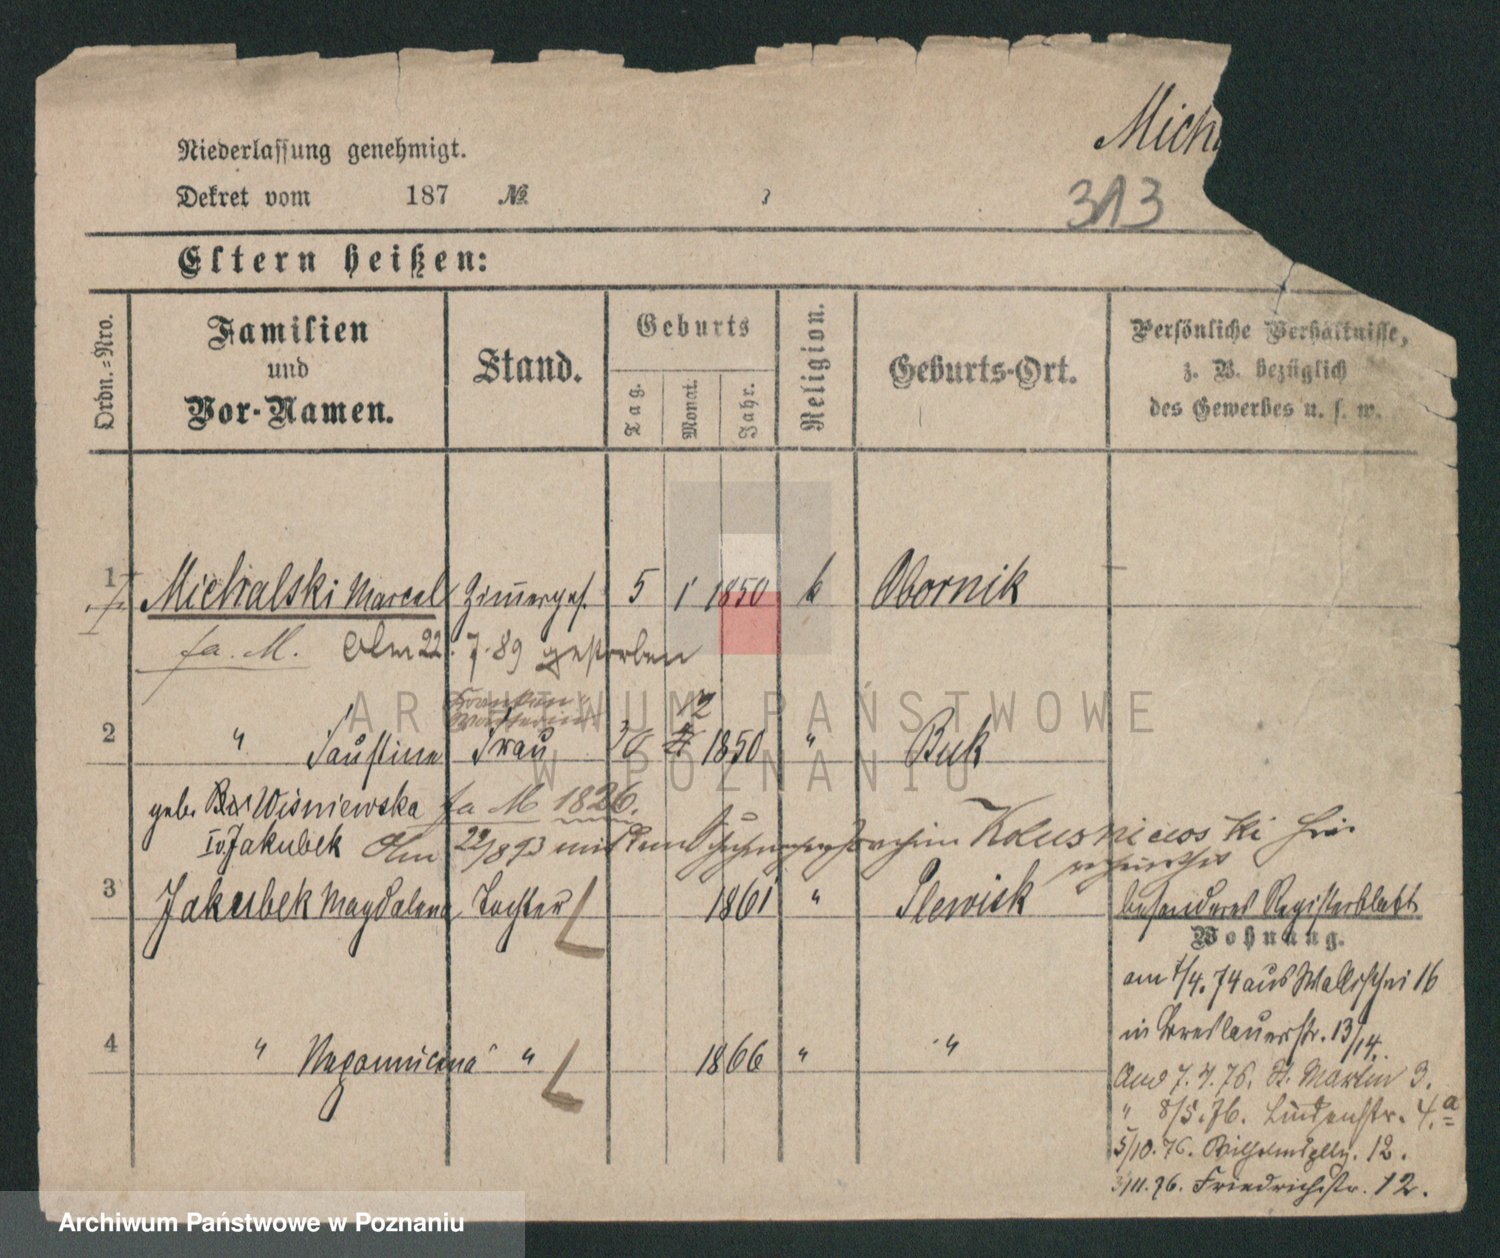 Mich
313
Niederlassung genehmigt.
Dekret vom 187 №
Eltern heißen:
Ordn.=Nro.
Familien
und
Vor-Namen.
Stand.
Geburts
Tag.
Monat.
Jahr.
Religion.
Geburts-Ort.
Persönliche Verhältnisse,
z. B. bezüglich
des Gewerbes u. s. w.
1 Michalski Marcel Zimmerges. 5 1 1850 k Obornik
fa. M. Am 22. 7. 89 gestorben
Kranken
Wärterin
12
2 " Faustine Frau 1850 " Buk
geb. Wiśniewska fa M 1826.
Iv. Jakubek Am 22/8 93 mit dem Joachim
3 Jakubek Magdalena Tochter 1861 " Plewisk
besonderes Registerblatt
Wohnung.
am 1/4. 74 aus Wallischei 16
in Breslauerstr. 13/14.
4 " Nepomucena " 1866 " "
And 7. 4. 76. St. Martin 3.
" 8/5. 76. Lindenstr. 4.a
5/10. 76. Wilhelmspltz. 12.
3/11. 76. Friedrichstr. 12.
ARCHIWUM PAŃSTWOWE
W POZNANIU
Archiwum Państwowe w Poznaniu